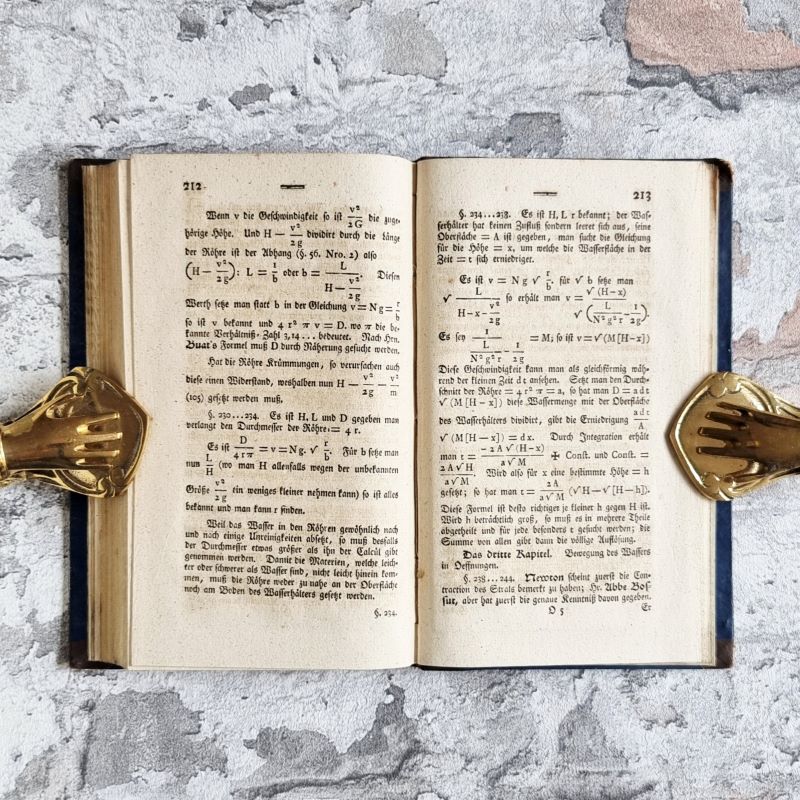 212
Wenn v die Geschwindigkeit so ist v²/2G die zuge-
hörige Höhe. Und H — v²/2g dividirt durch die Länge
der Röhre ist der Abhang (§. 56. Nro. 2) also
(H — v²/2g): L = 1/b oder b = L/(H — v²/2g). Diesen
Werth setze man statt b in der Gleichung v = Ng = r/b
so ist v bekannt und 4 r² π v = D. wo π die be-
kannte Verhältniß-Zahl 3,14 ... bedeutet. Nach Hrn.
Buat's Formel muß D durch Näherung gesucht werden.
Hat die Röhre Krümmungen, so verursachen auch
diese einen Widerstand, weshalben nun H — v²/2g — v²/m
(105) gesetzt werden muß.
§. 230...234. Es ist H, L und D gegeben man
verlangt den Durchmesser der Röhre = 4 r.
Es ist D/4rπ = v = Ng. √ r/b. Für b setze man
nun L/H (wo man H allenfalls wegen der unbekannten
Größe v²/2g ein weniges kleiner nehmen kann) so ist alles
bekannt und man kann r finden.
Weil das Wasser in den Röhren gewöhnlich nach
und nach einige Unreinigkeiten absetzt, so muß desfalls
der Durchmesser etwas größer als ihn der Calcül gibt
genommen werden. Damit die Materien, welche leich-
ter oder schwerer als Wasser sind, nicht leicht hinein kom-
men, muß die Röhre weder zu nahe an der Oberfläche
noch am Boden des Wasserhälters gesetzt werden.
§. 234.
213
§. 234...238. Es ist H, L r bekannt; der Was-
serhälter hat keinen Zufluß sondern leeret sich aus, seine
Oberfläche = A ist gegeben, man sucht die Gleichung
für die Höhe = x, um welche die Wasserfläche in der
Zeit = t sich erniedriget.
Es ist v = N g √ r/b. für √ b setze man
√ L/(H-x-v²/2g) so erhält man v = √ (H-x)/√ (L/N²g²r — 1/2g).
Es sey 1/(L/N²g²r — 1/2g) = M; so ist v = √ (M [H-x])
Diese Geschwindigkeit kann man als gleichförmig wäh-
rend der kleinen Zeit dt ansehen. Setzt man den Durch-
schnitt der Röhre = 4 r² π = a, so hat man D = a d t
√ (M [H-x]) diese Wassermenge mit der Oberfläche
des Wasserhälters dividirt, gibt die Erniedrigung a d t/A.
√ (M [H — x]) = dx. Durch Integration erhält
man t = -2 A √ (H-x)/a √ M ✠ Const. und Const. =
2 A √ H/a √ M. Wird also für x eine bestimmte Höhe = h
gesetzt; so hat man t = 2 A/a √ M (√ H — √ [H—h]).
Diese Formel ist desto richtiger je kleiner h gegen H ist.
Wird h beträchtlich groß, so muß es in mehrere Theile
abgetheilt und für jede besonders t gesucht werden; die
Summe von allen gibt dann die völlige Auflösung.
Das dritte Kapitel. Bewegung des Wassers
in Oeffnungen.
§. 238...244. Newton scheint zuerst die Con-
traction des Strals bemerkt zu haben; Hr. Abbe Bos-
sut, aber hat zuerst die genaue Kenntniß davon gegeben.
O 5 Er